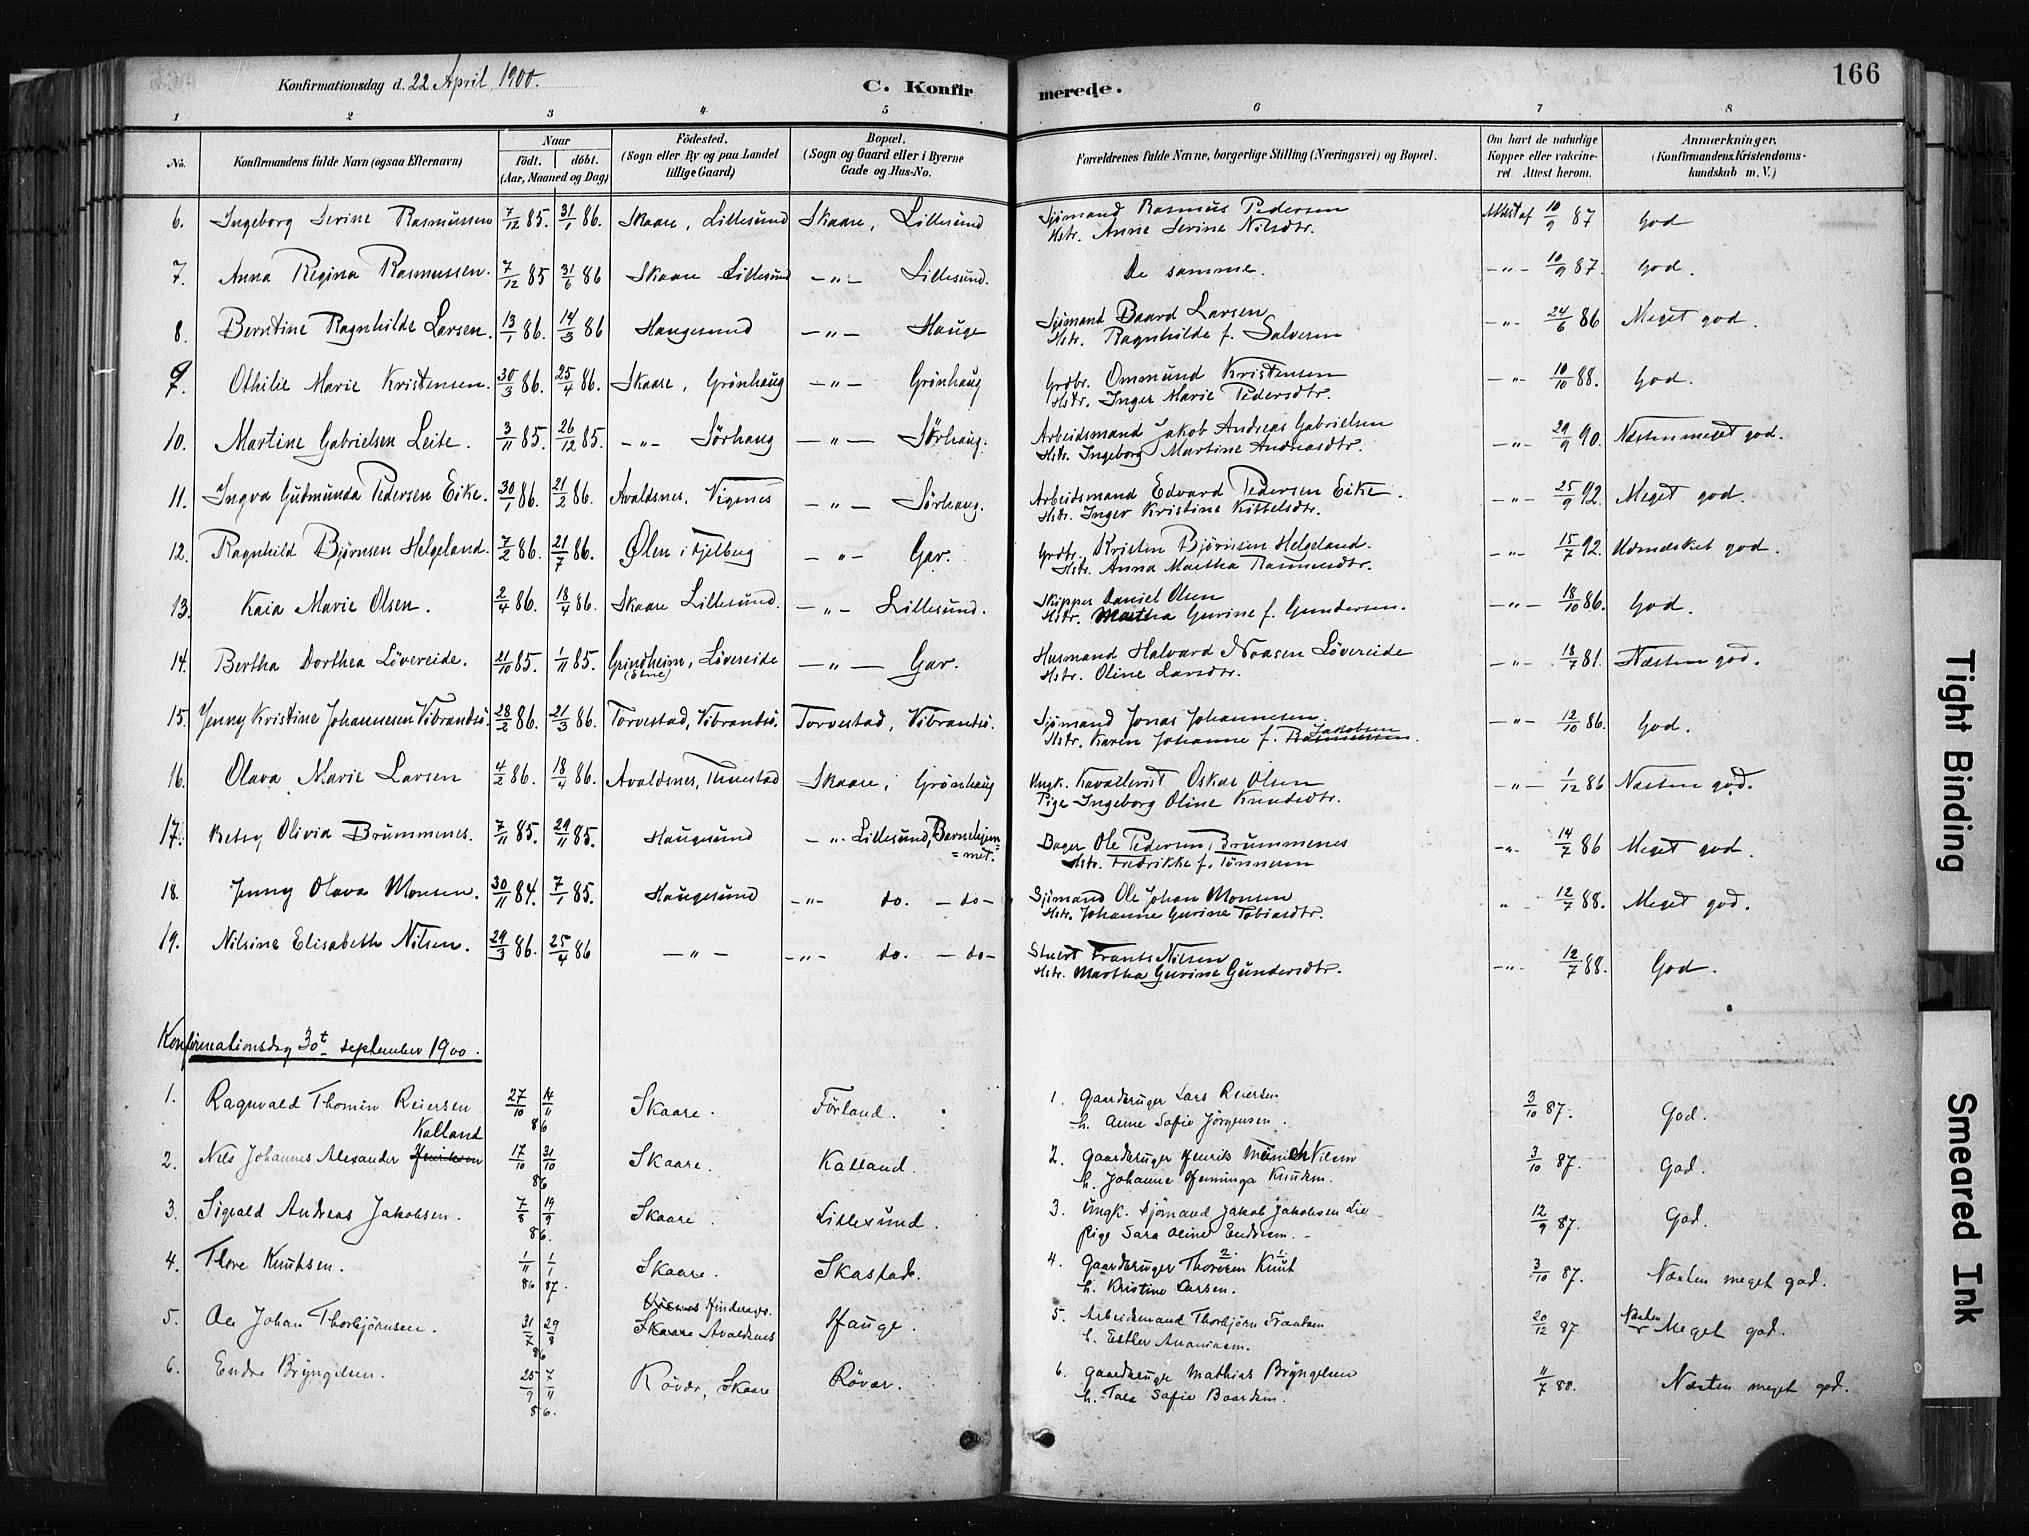 Konfirmationsdag d. 22 April 1900. C. Konfir merede. 166
1 2 3 4 5 6 7 8
No. Konfirmandens fulde Navn (ogsaa Efternavn) Naar født. døbt. (Aar, Maaned og Dag) Födested. (Sogn eller By og paa Landet tillige Gaard) Bopæl. (Sogn og Gaard eller i Byerne Gade og Hus-No. Forældrenes fulde Navne, borgerlige Stilling (Næringsvei) og Bopæl. Om havt de naturlige Kopper eller vakcineret. Attest herom. Anmærkninger. (Konfirmandens Kristendomskundskab m. V.)
6. Ingeborg Serine Rasmussen 7/12 85. 31/1 86. Skaare, Lillesund Skaare, Lillesund Sjömand Rasmus Pedersen Attest af 10/9 87 God
Hstr. Anne Serine Nilsdtr.
7. Anna Regina Rasmussen. 7/12 85 31/6 86 Skaare Lillesund -"- Lillesund. De samme. -"- 10/9 87. God.
8. Berntine Ragnhilde Larsen. 13/1 86. 14/3 86 Haugesund -"- Hauge Sjömand Baard Larsen -"- 24/6 86 Meget god.
Hstr. Ragnhilde f. Salvesen
9. Othilie Marie Kristensen. 30/3 86. 25/4 86. Skaare, Grönhaug -"- Grönhaug Grdbr. Ommund Kristensen -"- 10/10 88. God.
Hstr. Inger Marie Pedersdtr.
10. Martine Gabrielsen Leite. 3/11 85. 26/12 85. -"- Sörhaug -"- Sörhaug. Arbeidsmand Jakob Andreas Gabrielsen -"- 29/9 90. Næsten meget god.
Hstr. Ingeborg Martine Andreasdtr.
11. Ingva Gudmunda Pedersen Eike. 30/1 86. 21/2 86. Avaldsnes, Vignes -"- Sörhaug. Arbeidsmand Edvard Pedersen Eike. -"- 25/9 92. Meget god.
Hstr. Inger Kristine Kittelsdtr.
12. Ragnhild Bjørnsen Helgeland. 7/2 86. 21/7 86. Ølen i Fjelberg -"- Gar. Grdbr. Kristen Bjørnsen Helgeland. -"- 15/7 92. Udmærket god.
Hstr. Anna Martha Rasmusdtr.
13. Kaia Marie Olsen. 2/4 86. 18/4 86. Skaare Lillesund. -"- Lillesund. Skipper Daniel Olsen -"- 18/10 86. God.
Hstr. Martha Gurine f. Gundersen.
14. Bertha Dorthea Lövereide. 21/10 85. 1/11 85. Grindheim, Lövereide (Etne) -"- Gar. Husmand Halvard Noasen Lövereide -"- 18/7 81. Næsten god.
Hstr. Oline Larsdtr.
15. Jenny Kristine Johannesen Vibrandsö. 28/2 86. 21/3 86. Torvestad, Vibrandsö. Torvestad, Vibrandsö. Sjömand Jonas Johannesen -"- 12/10 86. God.
Hstr. Karen Johanne f. Rasmussen Jakobsen.
16. Olava Marie Larsen 4/2 86. 18/4 86. Avaldsnes, Thuestad Skaare, Grönhaug Ungk. Kavallerist Oskar Olsen -"- 1/12 86 Næsten god.
Pige Ingeborg Oline Knudsdtr.
17. Betsy Olivia Brummenes. 7/11 85. 29/11 85. Haugesund -"- Lillesund, Barnehjemmet. Bager Ole Pedersen, Brummenes -"- 14/7 86 Meget god.
Hstr. Fredrikke f. Tönnesen
18. Jenny Olava Monsen. 30/11 84. 7/1 85. Haugesund -"- do. -do- Sjömand Ole Johan Monsen " - 12/7 88. Meget god.
Hstr. Johanne Gurine Tobiasdtr.
19. Nilsine Elisabeth Nilsen. 29/3 86. 25/4 86 -"- -"- do. -do- Stuert Frants Nilsen -"- 12/7 88. God.
Hstr. Martha Gurine Gundersdtr.
Konfirmationsdag 30t september 1900.
1. Ragnvald Thomin Reiersen 27/10 14/11 86 Skaare. Förland. 1. Gaardbruger Lars Reiersen 3/10 87. God.
h. Anne Sofie Jörgensen.
2. Nils Johannes Alexander Henriksen Kalland 17/10 31/10 86 Skaare. Kalland. 2. Gaardbruger Henrik Münich Nilsen 3/10 87. God.
h. Johanne Henninga Knudsen.
3. Sigvald Andreas Jakobsen. 7/8 19/9 86. Skaare. Lillesund. 3. Ungk. Sjömand Jakob Jakobsen Lie 12/9 87. God.
Pige Sara Oline Endresen.
4. Thore Knutsen. 1/11 86 1/1 87. Skaare. Skastad. 4. Gaardbruger Thoresen Knut 3/10 87. Næsten meget god.
h. Kristine Larsen.
5. Ole Johan Thorbjörnsen. 31/7 29/8 86 Hinderager Skaare Avaldsnes Hauge. 5. Arbeidsmand Thorbjörn Frantsen 20/12 87. Næsten Meget god.
h. Esther Ananiasen.
6. Endre Bryngelsen. 25/9 7/11 86. Rövær, Skaare Rövær. 6. Gaardbruger Mathias Bryngelsen 11/7 88. Næsten meget god.
h. Tala Sofie Baardsen.
Tight Binding
Smeared Ink